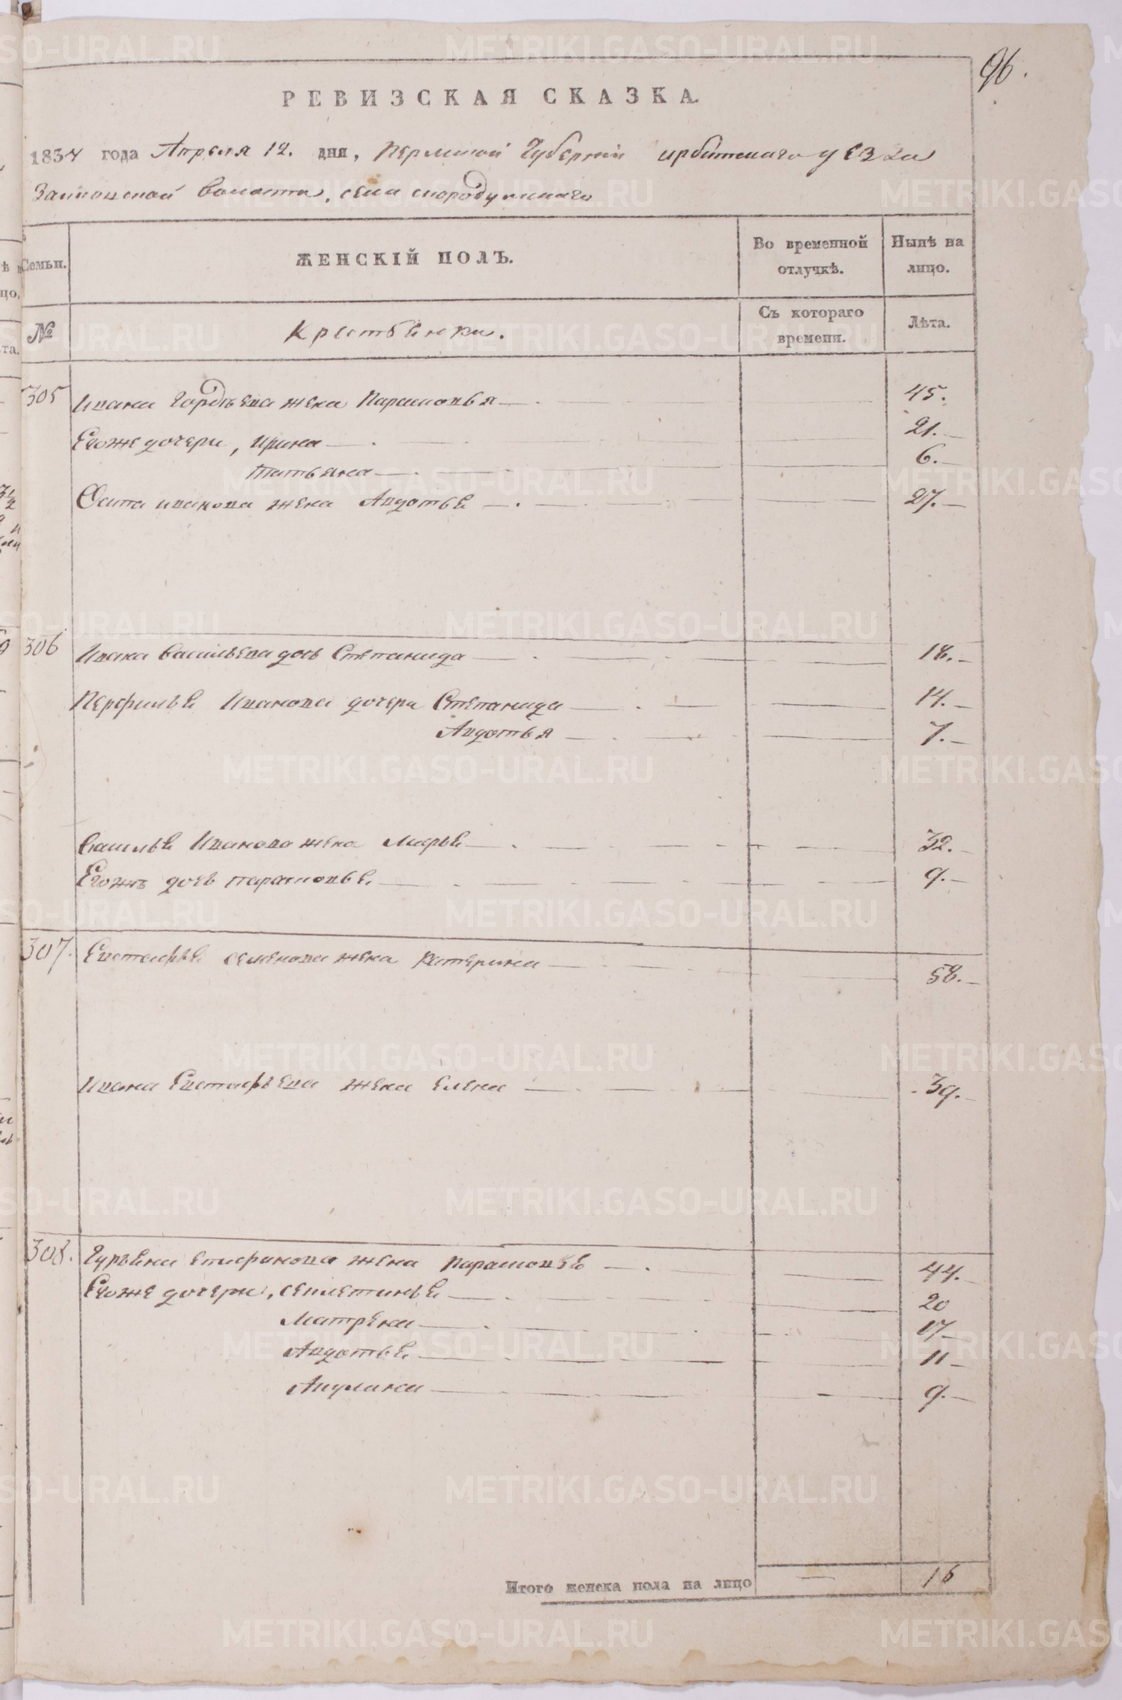 96.
РЕВИЗСКАЯ СКАЗКА.
1834 года Апреля 12. дня, Пермской Губернии ирбитскаго уезда
Зайковской волости, села скородумскаго
Семьи. ЖЕНСКІЙ ПОЛЪ. Во временной отлучкѣ. Нынѣ на лицо.
№ Крестьянки. Съ котораго времени. Лѣта.
305 Ивана Гордѣева жена Парасковья 45.
Егоже дочери, Ирина 21.
татьяна 6.
Осипа иванова жена Авдотья 27.
306 Ивана Васильева дочь Степанида 18.
Перфилья Иванова дочери Степанида 14.
Авдотья 7.
Василья Иванова жена Марья 32.
Егожъ дочь парасковья 9.
307. Евстафья семенова жена Катерина 58.
Ивана Евстафьева жена елена 39.
308. Гурьяна епифанова жена парасковья 44.
Егоже дочери, 20
Матрена 17
Авдотья 11
Акулина 9.
Итого женска пола на лицо — 16
METRIKI.GASO-URAL.RU